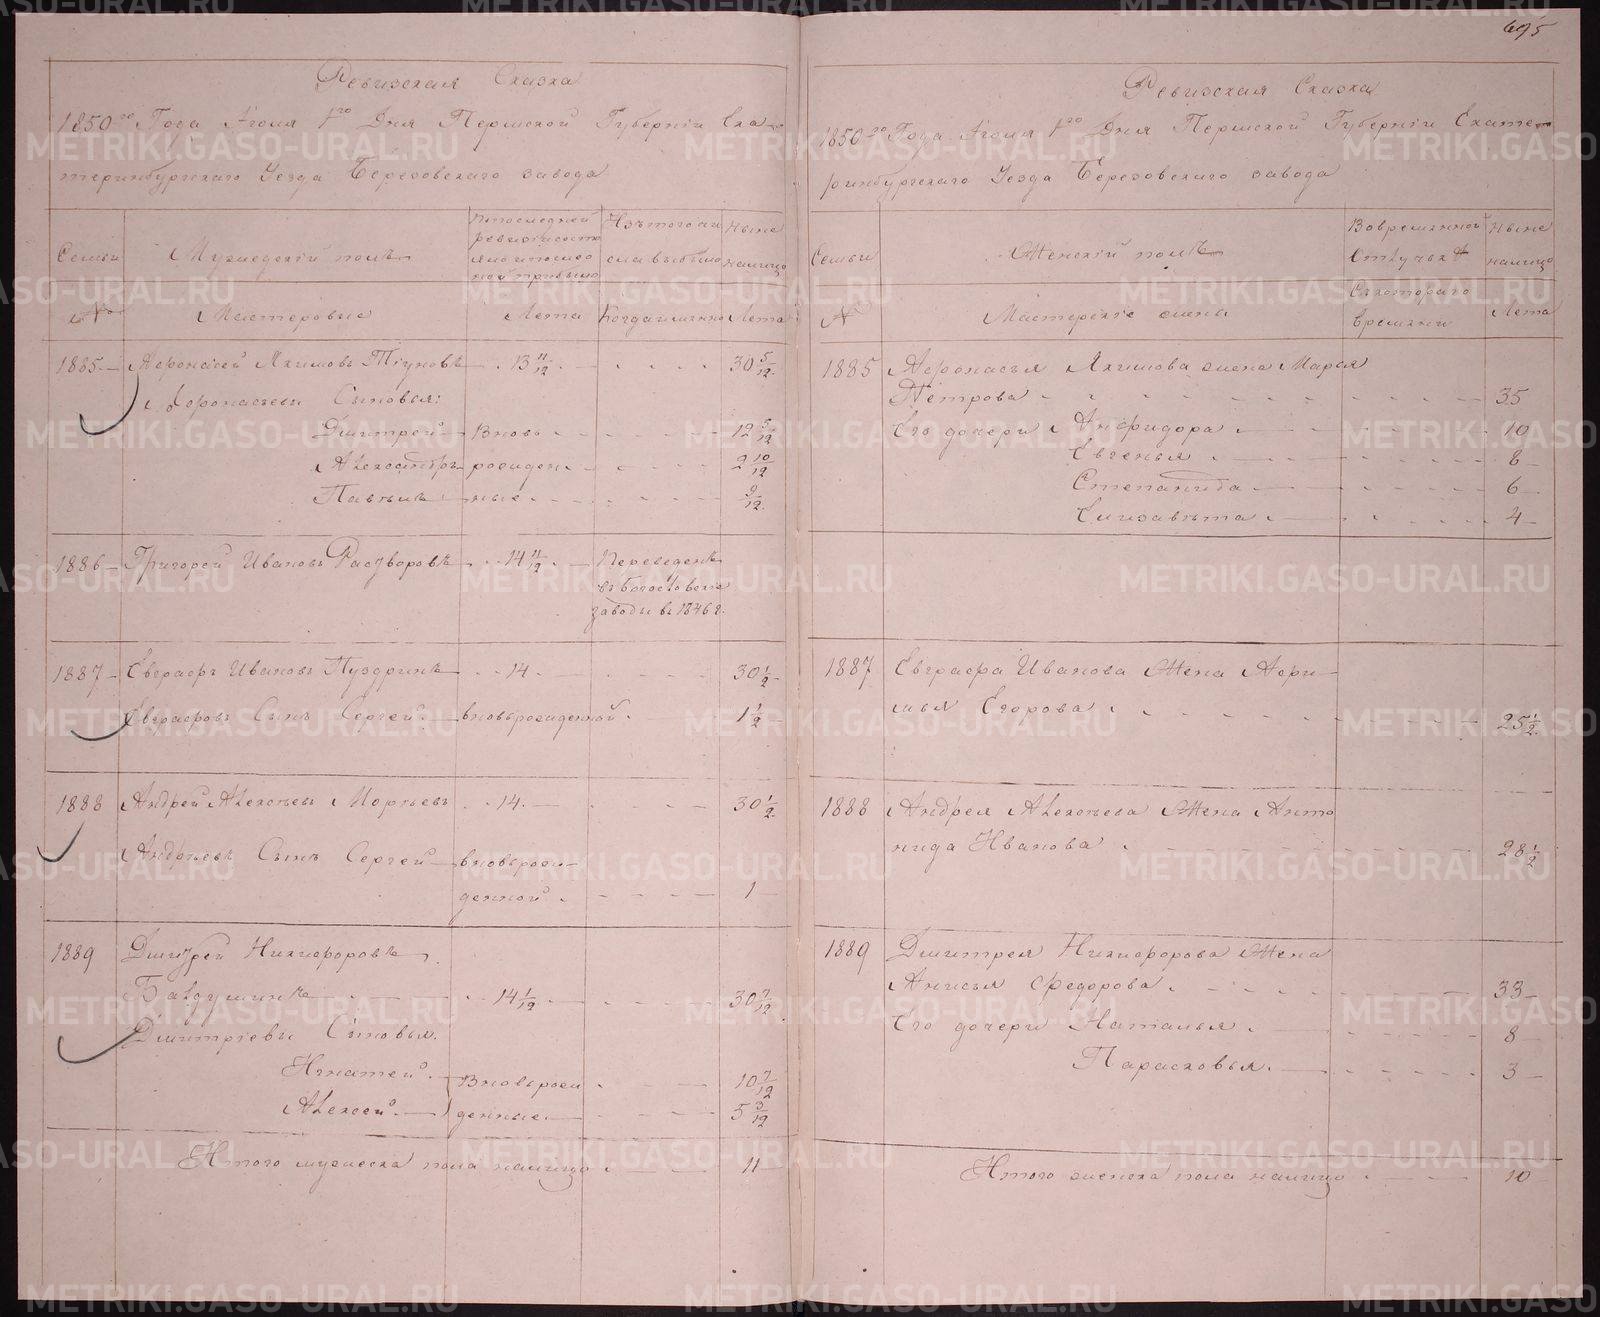 695
Ревизская Сказка
1850го Года Июля 1го Дня Пермской Губернiи Ека-
теринбургскаго Уезда Березовскаго завода
Семьи
№
Мужеский полъ
Мастеровые
По последней
ревизiи состо
яло и после
ной прибыло
Лета
Изъ того чи
сла выбыло
Когда именно
Ныне
налицо
Лета
1885 Афонасей Якимовъ Тiуновъ 13 11/12 30 5/12
Афонасьевы Сыновья:
Дмитрей Вновь 12 5/12
Александръ рожден 2 10/12
Павелъ ные 9/12
1886 Григорей Ивановъ Расторовъ 14 11/12 Переведенъ
въ Богословские
заводы въ 1846 г.
1887 Евграфъ Ивановъ Пуздринъ 14 30 1/2
Евграфовъ Сынъ Сергей вновьрожденной 1 1/2
1888 Андрей Алексѣевъ 14 30 1/2
Андрѣевъ Сынъ Сергей вновьрож-
денной 1
1889 Дмитрей Никифоровъ
14 1/12 30 7/12
Дмитрiевы Сыновья.
Игнатей Вновьрож 10 7/12
Алексей денные 5 3/12
Итого мужеска пола налицо 11
Ревизская Сказка
1850го Года Июля 1го Дня Пермской Губернiи Екате-
ринбургскаго Уезда Березовскаго завода
Семьи
№
Женскiй полъ
Мастерскiе жены
Во временной
отлучке
Съ котораго
времяни
Ныне
налицо
Лета
1885 Афонасья Якимова жена Марья
Петрова 35
Его дочери Анфидора 10
Евгенья 8
Степанида 6
Елизавѣта 4
1887 Евграфа Иванова Жена Афи-
мья Егорова 25 1/2
1888 Андрея Алексѣева Жена Анто
нида Иванова 28 1/2
1889 Дмитрея Никифорова Жена
Анисья Федорова 33
Его дочери Наталья 8
Парасковья 3
Итого женска пола налицо 10
METRIKI.GASO-URAL.RU